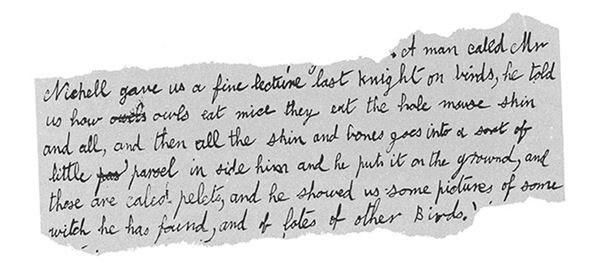 A man caled Mr
Nichell gave us a fine lecture last knight on birds, he told
us how owls owls eat mice they eat the hole mouse skin
and all, and then all the skin and bones goes into a sort of
little par parsel in side him and he puts it on the ground, and
those are caled pelets, and he showed us some pictures of some
witch he has found, and of lotes of other Birds.